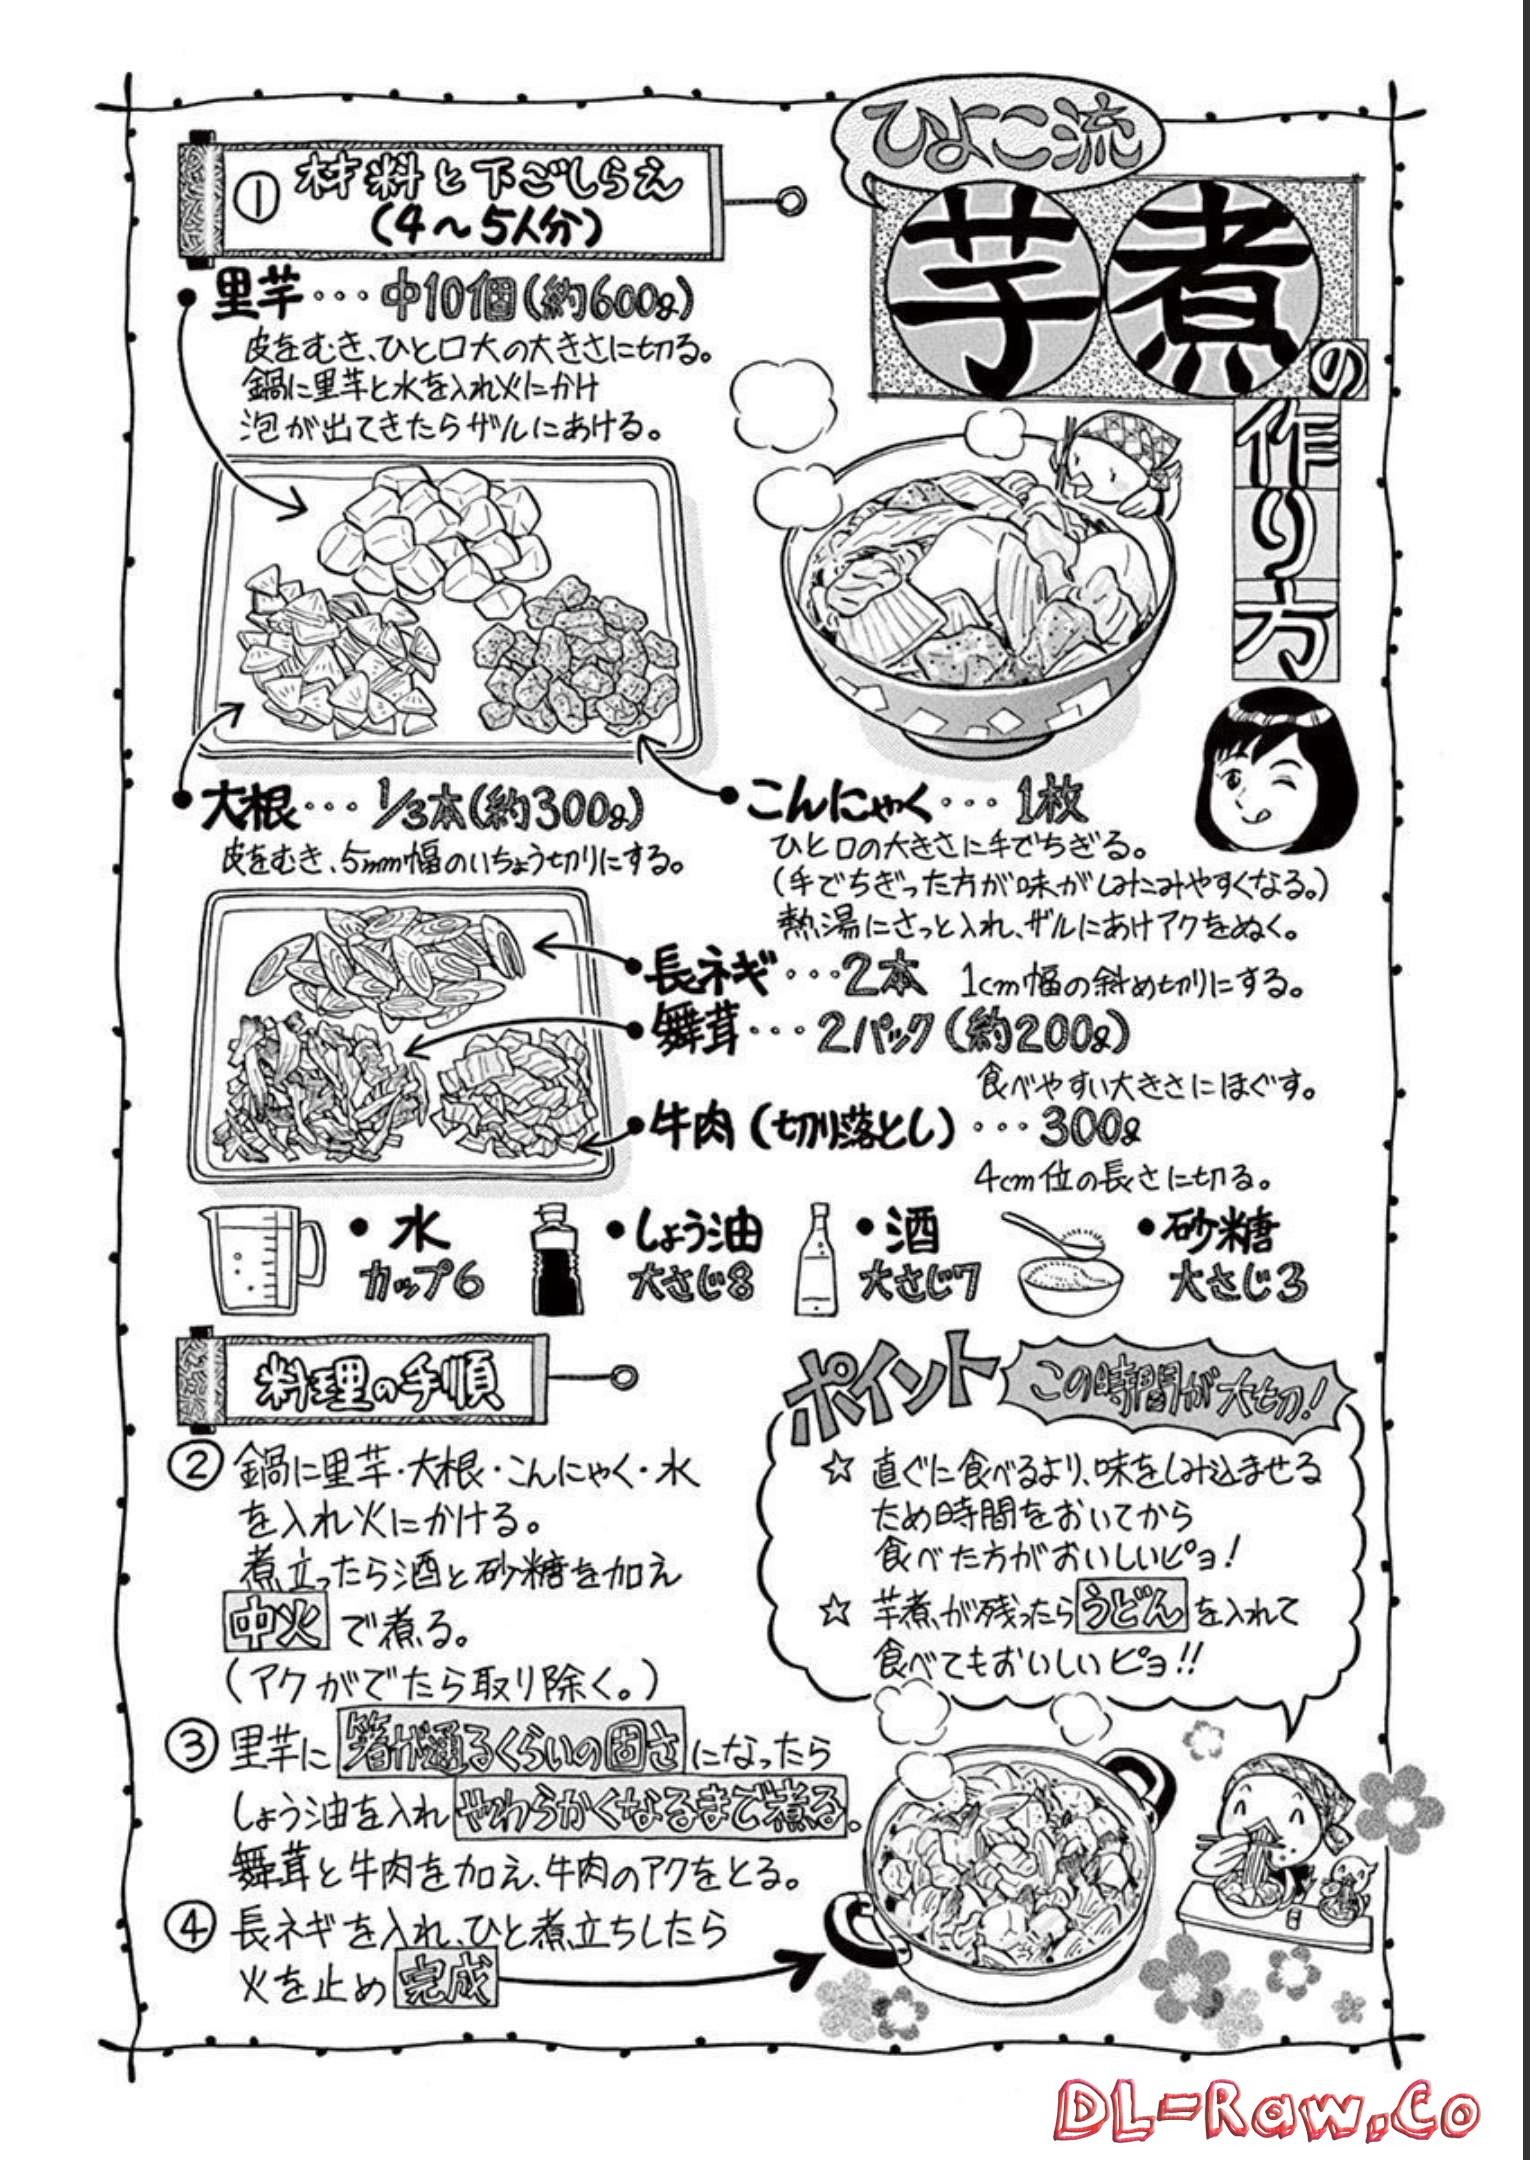 ひよこ流
芋煮の
作り方
① 材料と下ごしらえ
(4〜5人分)
里芋・・・中10個(約600g)
皮をむき、ひと口大の大きさに切る。
鍋に里芋と水を入れ火にかけ
泡が出てきたらザルにあける。
大根・・・1/3本(約300g)
皮をむき、5mm幅のいちょう切りにする。
こんにゃく・・・1枚
ひと口の大きさに手でちぎる。
(手でちぎった方が味がしみこみやすくなる。)
熱湯にさっと入れ、ザルにあけアクをぬく。
長ネギ・・・2本 1cm幅の斜め切りにする。
舞茸・・・2パック(約200g)
食べやすい大きさにほぐす。
牛肉(切り落とし)・・・300g
4cm位の長さに切る。
・水
カップ6
・しょう油
大さじ8
・酒
大さじ7
・砂糖
大さじ3
料理の手順
② 鍋に里芋・大根・こんにゃく・水
を入れ火にかける。
煮立ったら酒と砂糖を加え
中火で煮る。
(アクがでたら取り除く。)
③ 里芋に箸が通るくらいの固さになったら
しょう油を入れやわらかくなるまで煮る。
舞茸と牛肉を加え、牛肉のアクをとる。
④ 長ネギを入れ、ひと煮立ちしたら
火を止め完成
ポイント この時間が大切!
☆ 直ぐに食べるより、味をしみ込ませる
ため時間をおいてから
食べた方がおいしいピヨ!
☆ 芋煮が残ったらうどんを入れて
食べてもおいしいピヨ!!
DL-Raw.Co